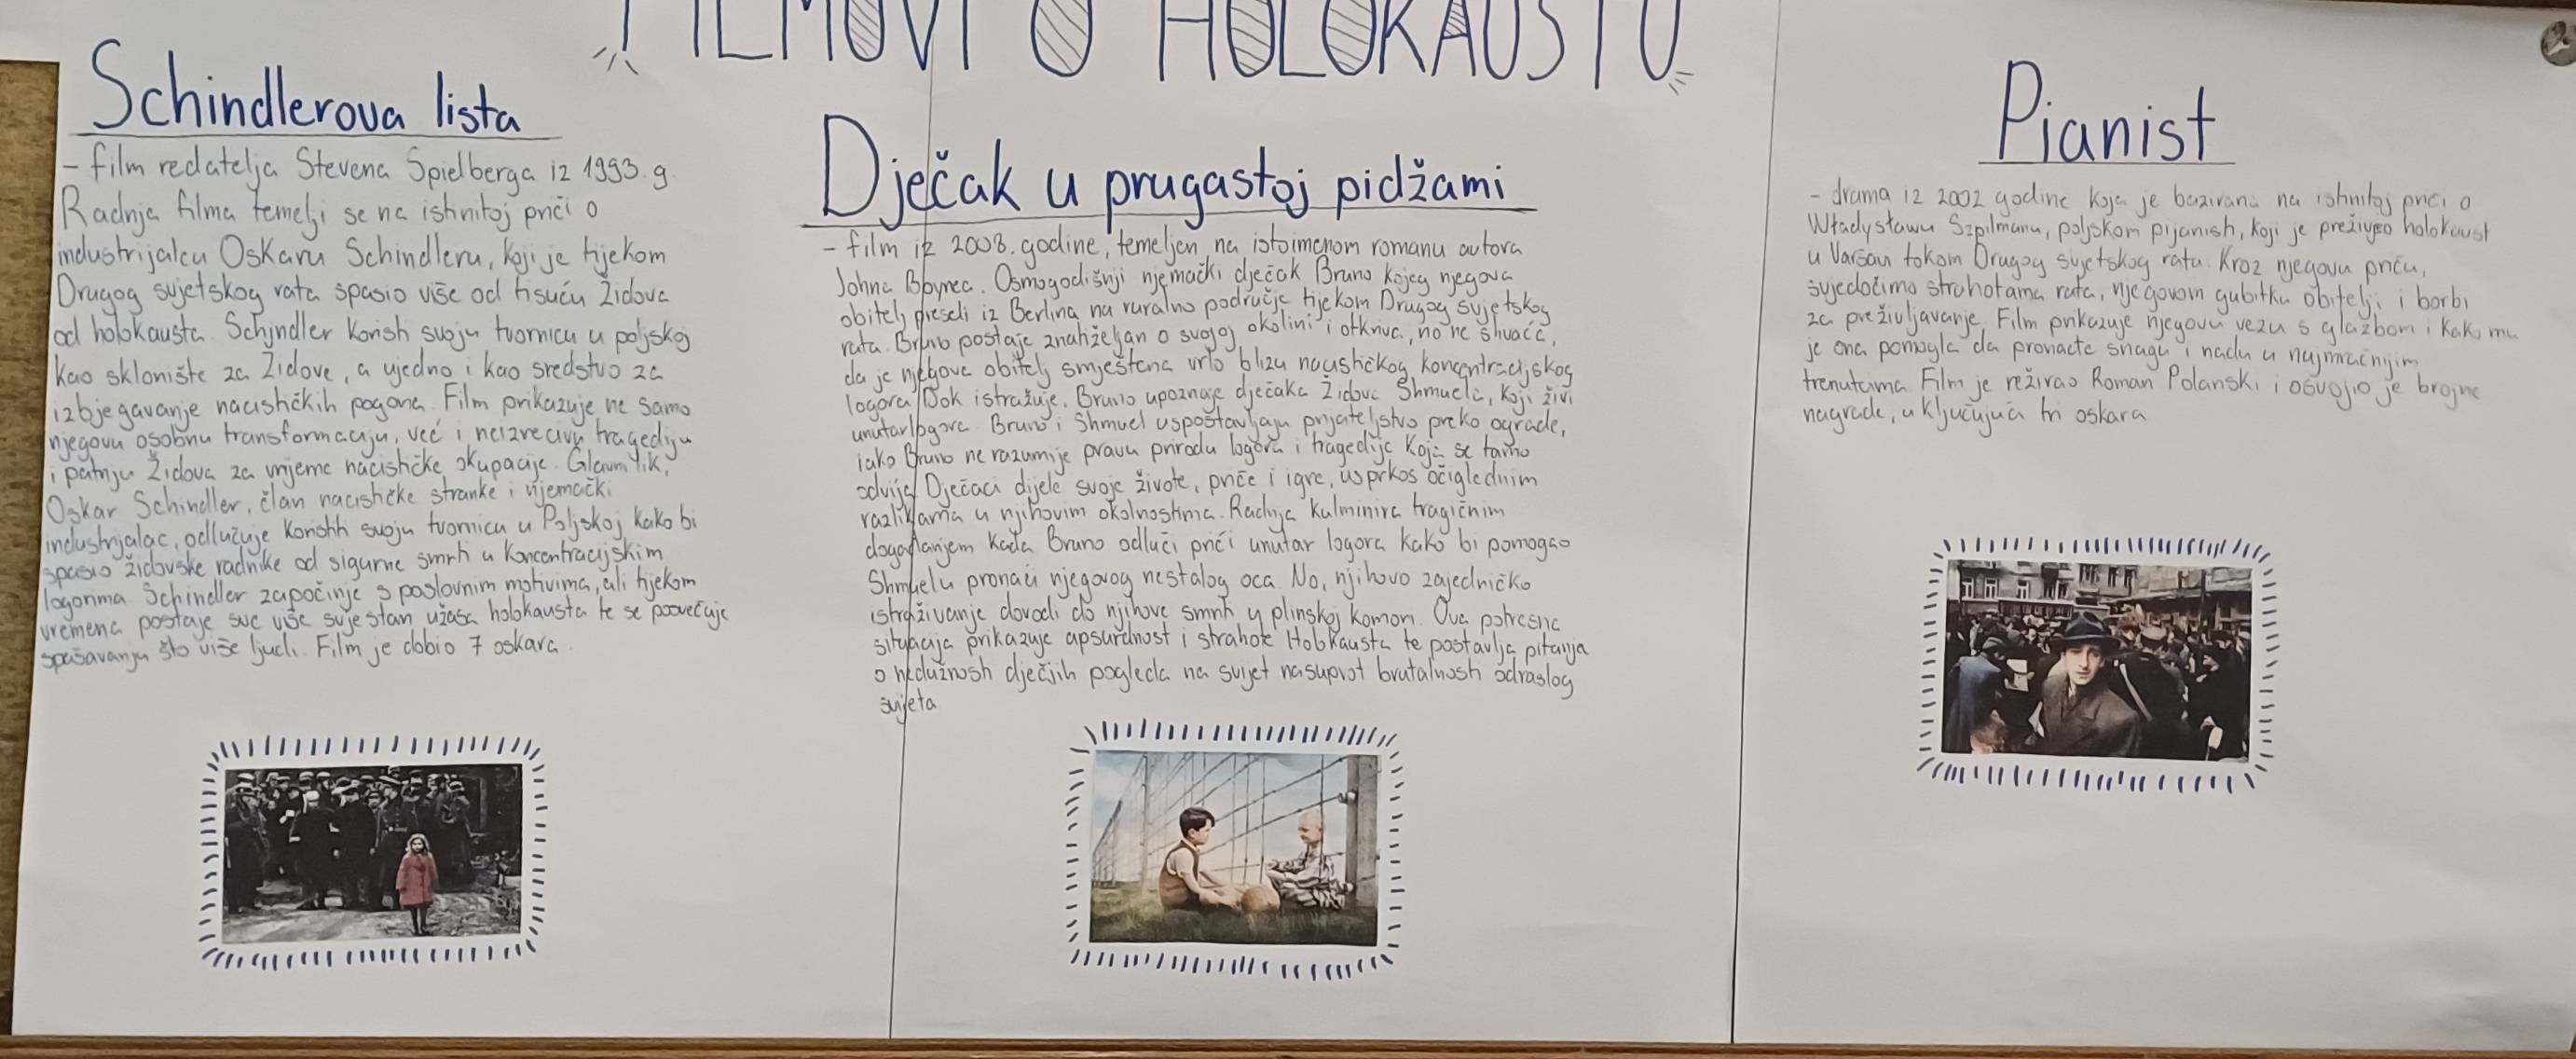 FILMOVI O HOLOKAUSTU
Schindlerova lista
- film redatelja Stevena Spielberga iz 1993. g.
Radnja filma temelji se na istinitoj priči o
industrijalcu Oskaru Schindleru, koji je tijekom
Drugog svjetskog rata spasio više od tisuću Židova
od holokausta. Schindler koristi svoju tvornicu u poljskoj
kao sklonište za Židove, a ujedno i kao sredstvo za
izbjegavanje nacističkih pogona. Film prikazuje ne samo
njegovu osobnu transformaciju, već i neizrecivu tragediju
i patnju Židova za vrijeme nacističke okupacije. Glavni lik,
Oskar Schindler, član nacističke stranke i njemački
industrijalac, odlučuje koristiti svoju tvornicu u Poljskoj kako bi
spasio židovske radnike od sigurne smrti u koncentracijskim
logorima. Schindler započinje s poslovnim motivima, ali tijekom
vremena postaje sve više svjestan užasa holokausta te se posvećuje
spašavanju što više ljudi. Film je dobio 7 oskara.
Dječak u prugastoj pidžami
- film iz 2008. godine, temeljen na istoimenom romanu autora
Johna Boynea. Osmogodišnji njemački dječak Bruno kojeg njegova
obitelj preseli iz Berlina na ruralno područje tijekom Drugog svjetskog
rata. Bruno postaje znatiželjan o svojoj okolini i otkriva, no ne shvaća,
da je njegova obitelj smještena vrlo blizu nacističkog koncentracijskog
logora. Dok istražuje, Bruno upoznaje dječaka Židova Shmuela, koji živi
unutar logora. Bruno i Shmuel uspostavljaju prijateljstvo preko ograde,
iako Bruno ne razumije pravu prirodu logora i tragedije koja se tamo
odvija. Dječaci dijele svoje živote, priče i igre, usprkos očiglednim
razlikama u njihovim okolnostima. Radnja kulminira tragičnim
događanjem kada Bruno odluči prići unutar logora kako bi pomogao
Shmuelu pronaći njegovog nestalog oca. No, njihovo zajedničko
istraživanje dovodi do njihove smrti u plinskoj komori. Ova potresna
situacija prikazuje apsurdnost i strahote Holokausta te postavlja pitanja
o nedužnosti dječjih pogleda na svijet nasuprot brutalnosti odraslog
svijeta
Pianist
- drama iz 2002 godine koja je bazirana na istinitoj priči o
Władysławu Szpilmanu, poljskom pijanisti, koji je preživjeo holokaust
u Varšavi tokom Drugog svjetskog rata. Kroz njegovu priču,
svjedočimo strahotama rata, njegovom gubitku obitelji i borbi
za preživljavanje. Film prikazuje njegovu vezu s glazbom i kako mu
je ona pomogla da pronađe snagu i nadu u najmračnijim
trenutcima. Film je režirao Roman Polanski i osvojio je brojne
nagrade, uključujući tri oskara